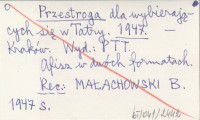 Przestroga dla wybierają-
cych się w Tatry. 1947. –
Kraków. Wyd.: PTT.
Afisz w dwóch formatach.
Rec: MAŁACHOWSKI B.
1947 s.